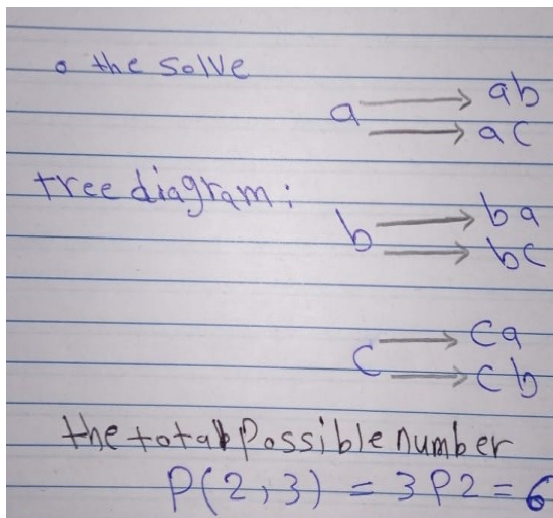 • the solve
a → ab
→ ac
tree diagram:
b → ba
→ bc
c → ca
→ cb
the total possible number
P(2,3) = 3P2 = 6